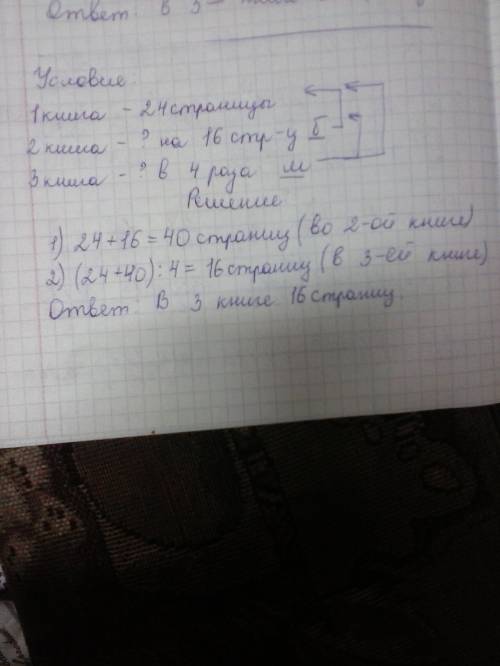 Ответ: В 3-
Условие
1 книга - 24 страницы
2 книга - ? на 16 стр-ц б
3 книга - ? в 4 раза м
Решение
1) 24+16=40 страниц (во 2-ой книге)
2) (24+40):4=16 страниц (в 3-ей книге)
Ответ: В 3 книге 16 страниц.